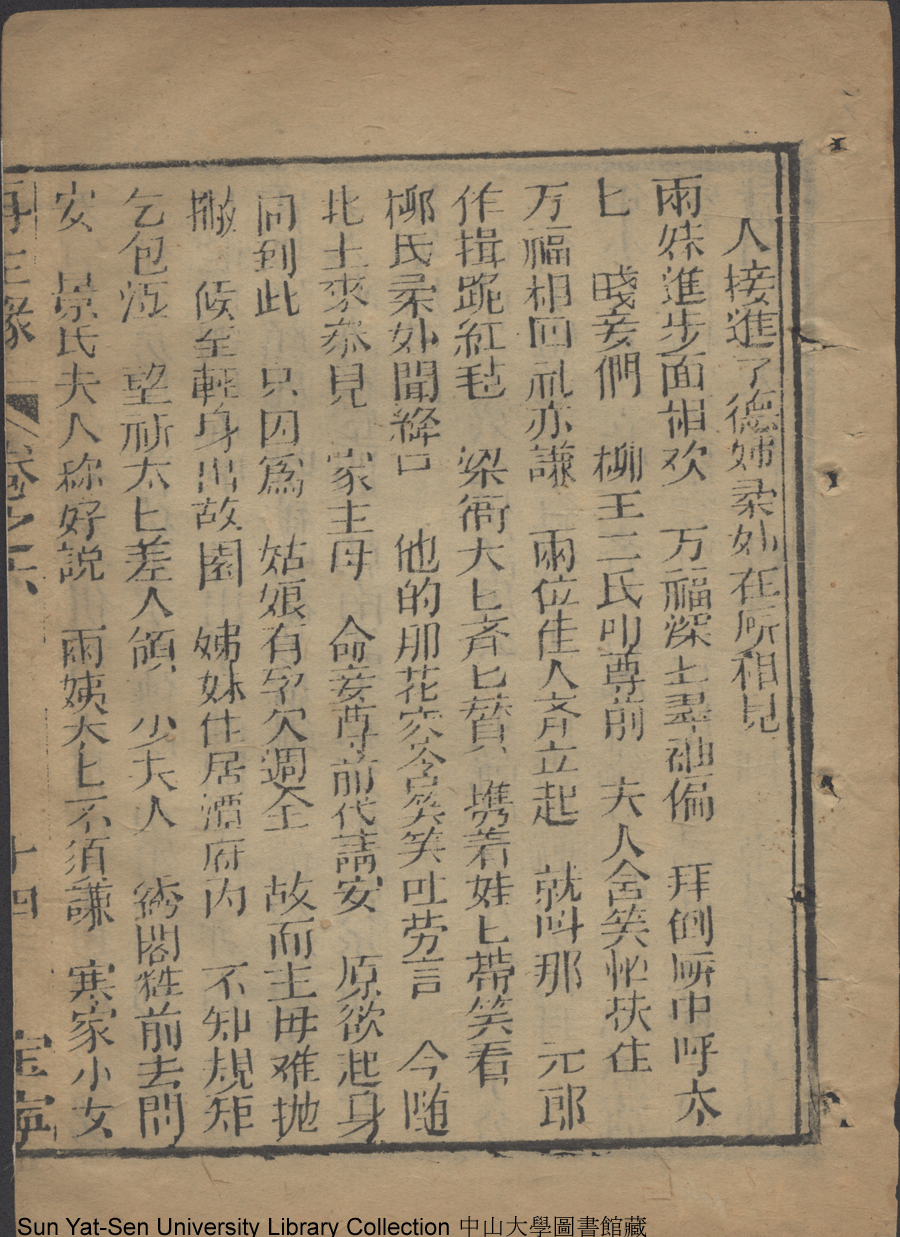 人接進了德姊柔妙在𠩄相見
兩妹進步面相欢　万福深匕翠袖偏　拜倒𠩄中呼太
匕　賤妾們　柳王二氏叩尊前　夫人含笑忙扶住
万福相回礼亦謙　兩位佳人齐立起　就呌那　元郎
作揖跪紅毡　梁衙大匕斉匕賛　携着娃匕帶笑看
柳氏柔妙聞絳口　他的那花容含笑吐劳言　今随
北土來叅見　家主母　命妾尊前代請安　原欲起身
同到此　只因爲　姑娘有孕欠週全　故而主毋难抛
撇　候至輕身出故園　姊妹住居酒府内　不知規矩
乞包涵　望祈太匕差人領　少夫人　綉閣牲前去問
安　景氏夫人称好説　兩姨太匕不須謙　寒家小女
再生緣　卷之六　十四　宝寧
Sun Yat-Sen University Library Collection 中山大學圖書館藏